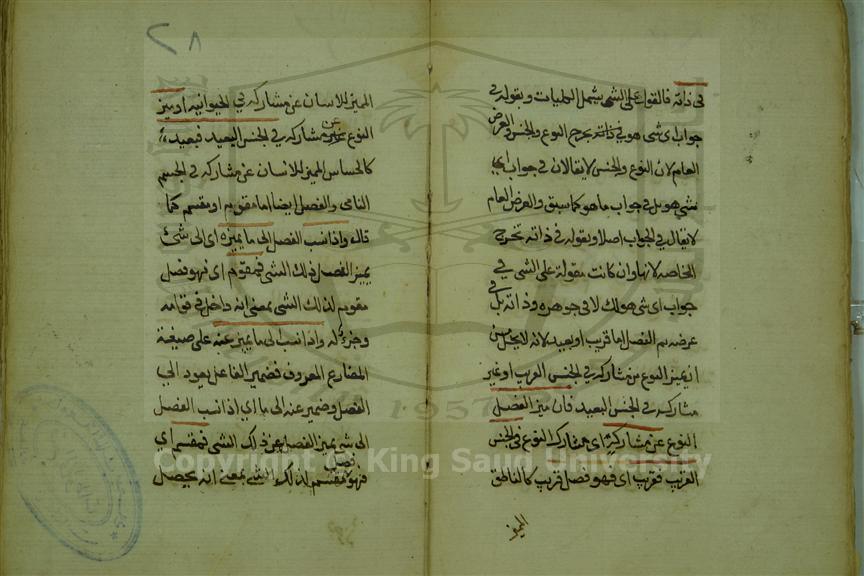 في ذاته فالقول على الشي يشمل الكليات وبقوله في
جواب اي شي هو في ذاته يخرج النوع والجنس والعرض
العام لان النوع والجنس لا يقالان في جواب اي
شي هو بل في جواب ما هو كما سبق والعرض العام
لا يقال في الجواب اصلا وبقوله في ذاته تخرج
الخاصه لانها وان كانت مقولة على الشي في
جواب اي شي هو لكن لا في جوهره وذاته بل في
عرضه ثم الفصل اما قريب او بعيد لانه لا يخلو من
ان يميز النوع عن مشاركه في الجنس القريب او عن
مشاركه في الجنس البعيد فان ميز الفصل
النوع عن مشاركيه اي عن مشارك النوع في الجنس
القريب فقريب اي فهو فصل قريب كالناطق
المميز
٢٨
المميز للانسان عن مشاركه في الحيوانيه او ميز
النوع عن مشاركه في الجنس البعيد فبعيد
كالحساس المميز للانسان عن مشاركه في الجسم
النامي والفصل ايضا اما مقوم او مقسم كما
قال واذا نسب الفصل الى ما يميزه اي الى شئ
يميز الفصل ذلك الشي فمقوم اي فهو فصل
مقوم لذلك الشي بمعنى انه داخل في قوامه
وجزء له واذا نسب الى ما يميز عنه على صيغة
المضارع المعروف فضمير الفاعل يعود الى
الفصل وضمير عنه الى ما اي اذا نسب الفصل
الى شي يميز الفصل عن ذلك الشي فمقسم اي
فهو فصل مقسم لذلك الشي بمعنى انه يحصل
Copyright © King Saud University
1957